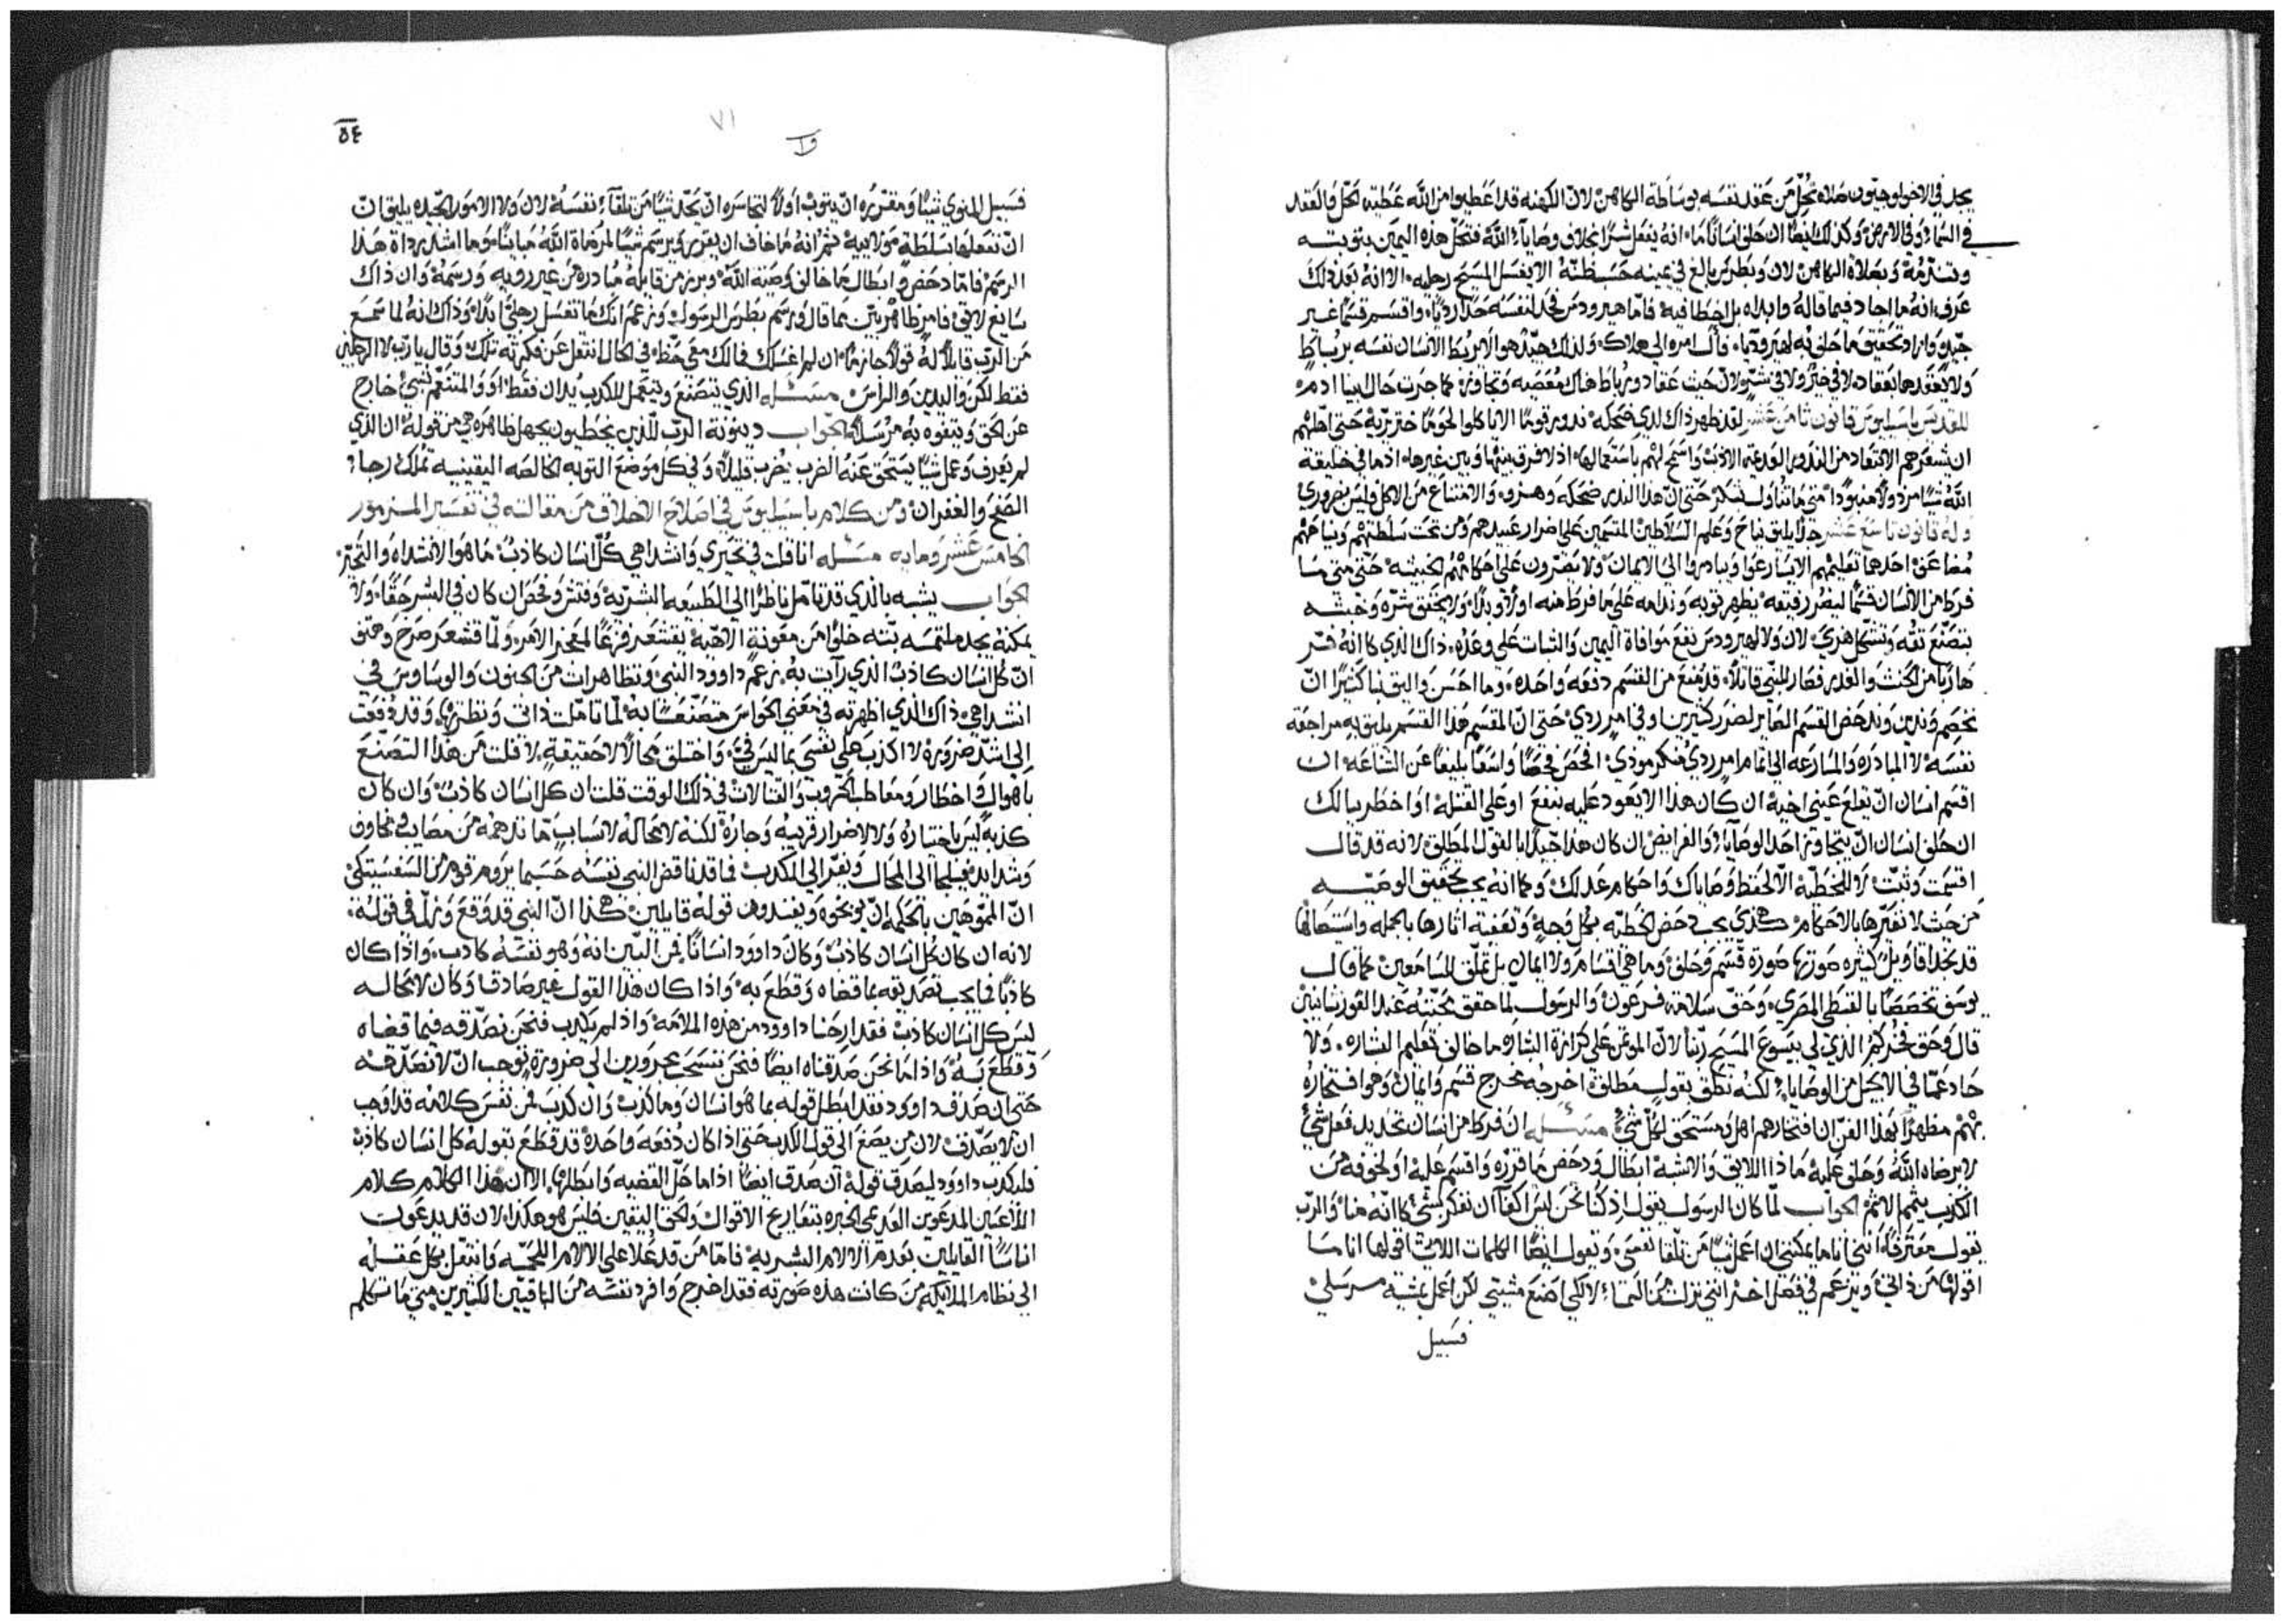 يجد في الاخولوجيون صلاه تحل من عقد نفسه بوساطة الكاهن لان الكهنه قد اعطيوا من الله عطية الحل والعقد
في السماء وفي الارض وكذلك ايضا ان حلف انسانا ما انه يفعل شرا خلاف وصايا الله فتحل هذه اليمين بتوبته
وتندمه وبصلاة الكاهن لان وبطرس بالغ في يمينه حسب ظنه الا يغسل المسيح رجليه الا انه بعد ذلك
عرف انه ما اجاد فيما قاله وابداه بل اخطا فيه فاما هيرودس فحد لنفسه حدا رديا واقسم قسما غير
جيد واراد تحقيق ما حلف به لهيروديا فال امره الى هلاك ولذلك جيد هو الا يربط الانسان نفسه برباط
ولا يعقدها بعقاد لا في خير ولا في شر لان حيث عقاد ورباط هناك معصيه وتجاوز كما جرت حال ابينا ادم
للقديس باسيليوس قانون ثامن عشر لقد ظهر ذاك لدي ضحكه ندور قوما الا ياكلوا لحوما خنزيرية حتى اظنهم
ان يشعرهم الابتعاد من النذور العديمه الادب واسمح لهم باستعمالها اذ لا فرق بينها وبين غيرها اذ ما في خليقة
الله شيئا مرذولا منبودا متى ما تناول بشكر حتى ان هذا النذر ضحكه وهزو والامتناع من الاكل فليس بضروري
وله قانون تاسع عشر جدا يليق نياح وعلم السلاطين المتيمين على اضرار عبيدهم ومن تحت سلطتهم ونياحهم
مضاعف احدها تعليمهم الا يسارعوا ويبادروا الى الايمان ولا يصرون على احكامهم الخبيثه حتى متى ما
فرط من الانسان قسما ليضر رفيقه يظهر توبه وندامه على ما فرط منه اولا وبدلا ولا يحقق شره وخبثه
بتصنع تقه وتشكل هدي لان ولا لهيرودس نفع موافاة اليمين والثبات على وعده ذاك الذي كانه فر
هاربا من الحنث والغدر فصار للنبي قاتلا قد منع من القسم دفعه واحده وما احسن واليق بنا كثيرا ان
نخصم وندين وندحض القسم الصاير لضرر كثيرين وفي امر ردي حتى ان المقسم هذا القسم يليق به مراجعة
نفسه لا المبادره والمسارعه الى اتمام امر ردي منكر موذي افحص فحصا واسعا بليغا عن الشاعه ان
اقسم انسان ان يقلع عيني اخيه ان كان هذا الا يعود عليه بنفع او على القتله او اخطر ببالك
ان حلف انسان ان يتجاوز احد الوصايا والفرايض ان كان هذا جيدا بالقول المطلق لانه قد قال
اقسمت وثبت لا للخطيه الا لحفظ وصاياك واحكام عدلك وكما انه يجب تحقيق الوصيه
من حيث لا تغيرها بالاحكام هكذى يجب دحض الخطيه بكل وجه وتعفية اثارها بالجمله واستيصالها
قد نجد اقاويل كثيره صورتها صورة قسم وحلف وما هي اقسام ولا ايمان بل تملق للسامعين كما قال
يوسف تخصصا بالقبطي المصري وحق سلامة فرعون والرسول لما حقق محبته عند القورنثانيين
قال وحق فخركم الذي لي بيسوع المسيح ربنا لان الموتمن على كرازة البشاره ما خالف تعليم البشاره ولا
حاد عما في الانجيل من الوصايا لكنه نطق بقول مطلق اخرجه مخرج قسم وايمان وهو افتخاره
بهم مظهرا بهذا الفن ان افتخارهم اهل ومستحق لكل شي مسئله ان فرط من انسان تحديد فعل شي
لا يرضاه الله وحلف عليه ماذا اللايق والاشبه ابطال ودحض ما قرره واقسم عليه او لخوفه من
الكذب يتمم الاثم الجواب لما كان الرسول يقول اذ كنا نحن ليس كفا ان نفكر بشي كانه منا والرب
يقول معترفا انني انا ما يمكنني ان اعمل شيئا من تلقا نفسي ويقول ايضا الكلمات اللاتي اقولها انا ما
اقولها من ذاتي ويزعم في فصل اخر انني نزلت من السماء لا لكي اصنع مشيتي لكن اعمل بمشية مرسلي
فسبيل
٥٤
٧١
فسبيل المنوي شيئا ومقرره ان يتوب اولا لتجاسره ان يحد شيئا من تلقاء نفسه لان ولا الامور الجيده يليق ان
ان نفعلها بسلطة مولانيه ثم انه ما خاف ان يقرر ويرسم شيئا لمرضاة الله مباينا وما اشد رداة هذا
الرسم فاما دحض وابطال ما خالف وصية الله وبرز من قايله مبادره من غير رويه ورسمه وان ذاك
سايغ لايق فامر ظاهر بين مما قال ورسم بطرس الرسول وزعم انك ما تغسل رجلي ابدا وذاك انه لما سمع
من الرب قايلا له قولا جازما ان لم اغسلك فمالك معي حظ في الحال انتقل عن فكرته تلك وقال يا رب لا الرجلين
فقط لكن واليدين والراس مسئله الذي يتصنع ويتعمل للكذب يدان فقط او والمتنغم بشي خارج
عن الحق ويتفوه به مرسلا الجواب دينونة الرب للذين يخطيون بجهل ظاهره هي من قوله ان الذي
لم يعرف وعمل شيئا يستحق عنه الضرب يضرب قليلا وفي كل موضع التوبه الخالصه اليقينيه تملك رجاء
الصفح والغفران ومن كلام باسيليوس في اصلاح الاخلاق من مقالته في تفسير المزمور
الخامس عشر وماية مسئله انا قلت في تحيري وانشداهي كل انسان كاذب ما هو الانشداه والتحير
الجواب يشبه بالذي قد تامل ناظرا الى الطبيعه البشريه وفتش وفحص ان كان في البشر حقا ولا
يمكنه يجد ملتمسه بتة خلوا من معونة الاهية يقشعر فزعا لمعجز الامر ولما قشعر صرخ وهتف
ان كل انسان كاذب الذي رات به زعم داوود النبي وتظاهرات من الجنون والوساوس في
انشداهي ذاك الذي اظهرته في معنى الحواس متصنعا به لما تاملت ذاتي ونظرتها وقد دفعت
الى اشد ضروره لا اكذب على نفسي بما ليس في واختلق محالا لا حقيقة لا قلت من هذا التصنع
باهوال واخطار ومعاطب الحروب والقتالات في ذلك الوقت قلت ان كل انسان كاذب وان كان
كذبه ليس باختباره ولا لاضرار قريبه وجاره لكنه لا محاله لاسباب ما تدهمه من مصايب ومخاوف
وشدايد فيلجا الى المحال ويفر الى الكذب فما قد ناقض النبي نفسه حسبما يروم قوم من السفسيتكي
ان المموهين بالحكمه ان يوبخوه ويفندون قوله قايلين هكذا ان النبي قد وقع وزل في قوله
لانه ان كان كل انسان كاذب وكان داوود انسانا فمن البين انه وهو نفسه كاذب واذا كان
كاذبا فما يجب تصديقه بما قضاه وقطع به واذا كان هذا القول غير صادقا وكان لا محاله
ليس كل انسان كاذب فقد ارحنا داوود من هذه الملامه واذ لم يكذب فنحن نصدقه فيما قضاه
وقطع به واذا ما نحن صدقناه ايضا فنحن ننسحب مجرورين الى ضرورة توجب ان لا نصدقه
حتى ان صدق داوود فقد ابطل قوله بما هو انسان وما كذب وان كذب فمن نفس كلامه قد اوجب
ان لا يصدق لان من يصغ الى قول الكذب حتى اذا كان دفعه واحده قد قطع بقوله كل انسان كاذب
فليكذب داوود ليصدق قوله ان صدق ايضا اذا ما حل القضيه وابطلها الا ان هذا الكلام كلام
اللاعبين المدعوين العديمي الخبره بتصاريح الاقوال والحق اليقين فليس هو هكذا لان قد يدعوت
اناسا القايلين بعدم الالام البشريه فاما من قد علا على الالام اللحميه وانتقل بكل عقله
الى نظام الملايكه من كانت هذه صورته فقد اخرج وافرد نفسه من الباقيين الكثيرين متى ما تكلم